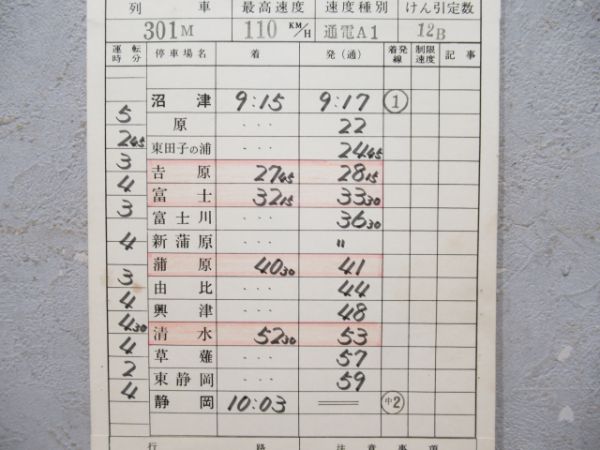 列 車 最高速度 速度種別 けん引定数
301M 110 KM/H 通電A1 12B
運転時分 停車場名 着 発(通) 着発線 制限速度 記事
沼津 9:15 9:17 ①
5 原 ・・・ 22
2 45 東田子の浦 ・・・ 24 45
3 吉原 27 45 28 15
4 富士 32 15 33 30
3 富士川 ・・・ 36 30
新蒲原 ・・・ 〃
4 蒲原 40 30 41
3 由比 ・・・ 44
4 興津 ・・・ 48
4 30 清水 52 30 53
4 草薙 ・・・ 57
2 東静岡 ・・・ 59
4 静岡 10:03 ══ 中2
行 路 注 意 事 項